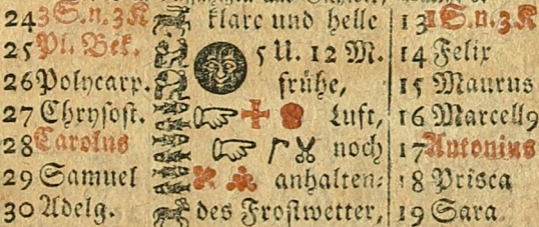 24 3 S. n. 3 K klare und helle 13 1 S. n. 3. K
25 Pl. Bek. 5 U. 12 M. 14 Felix
26 Polycarp. frühe, 15 Maurus
27 Chrysost. Luft, 16 Marcell9
28 Carolus noch 17 Antonius
29 Samuel anhalten- 18 Prisca
30 Adelg. des Frostwetter, 19 Sara